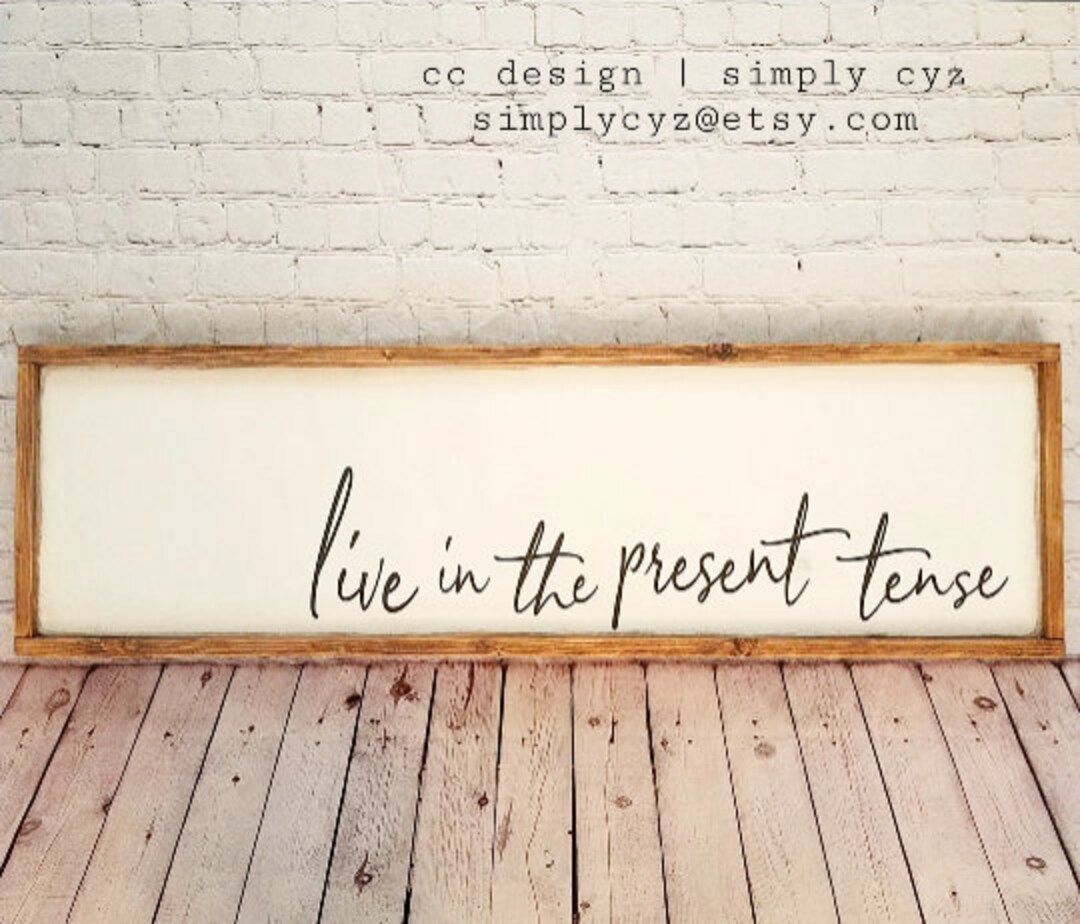 cc design | simply cyz
simplycyz@etsy.com
live in the present tense